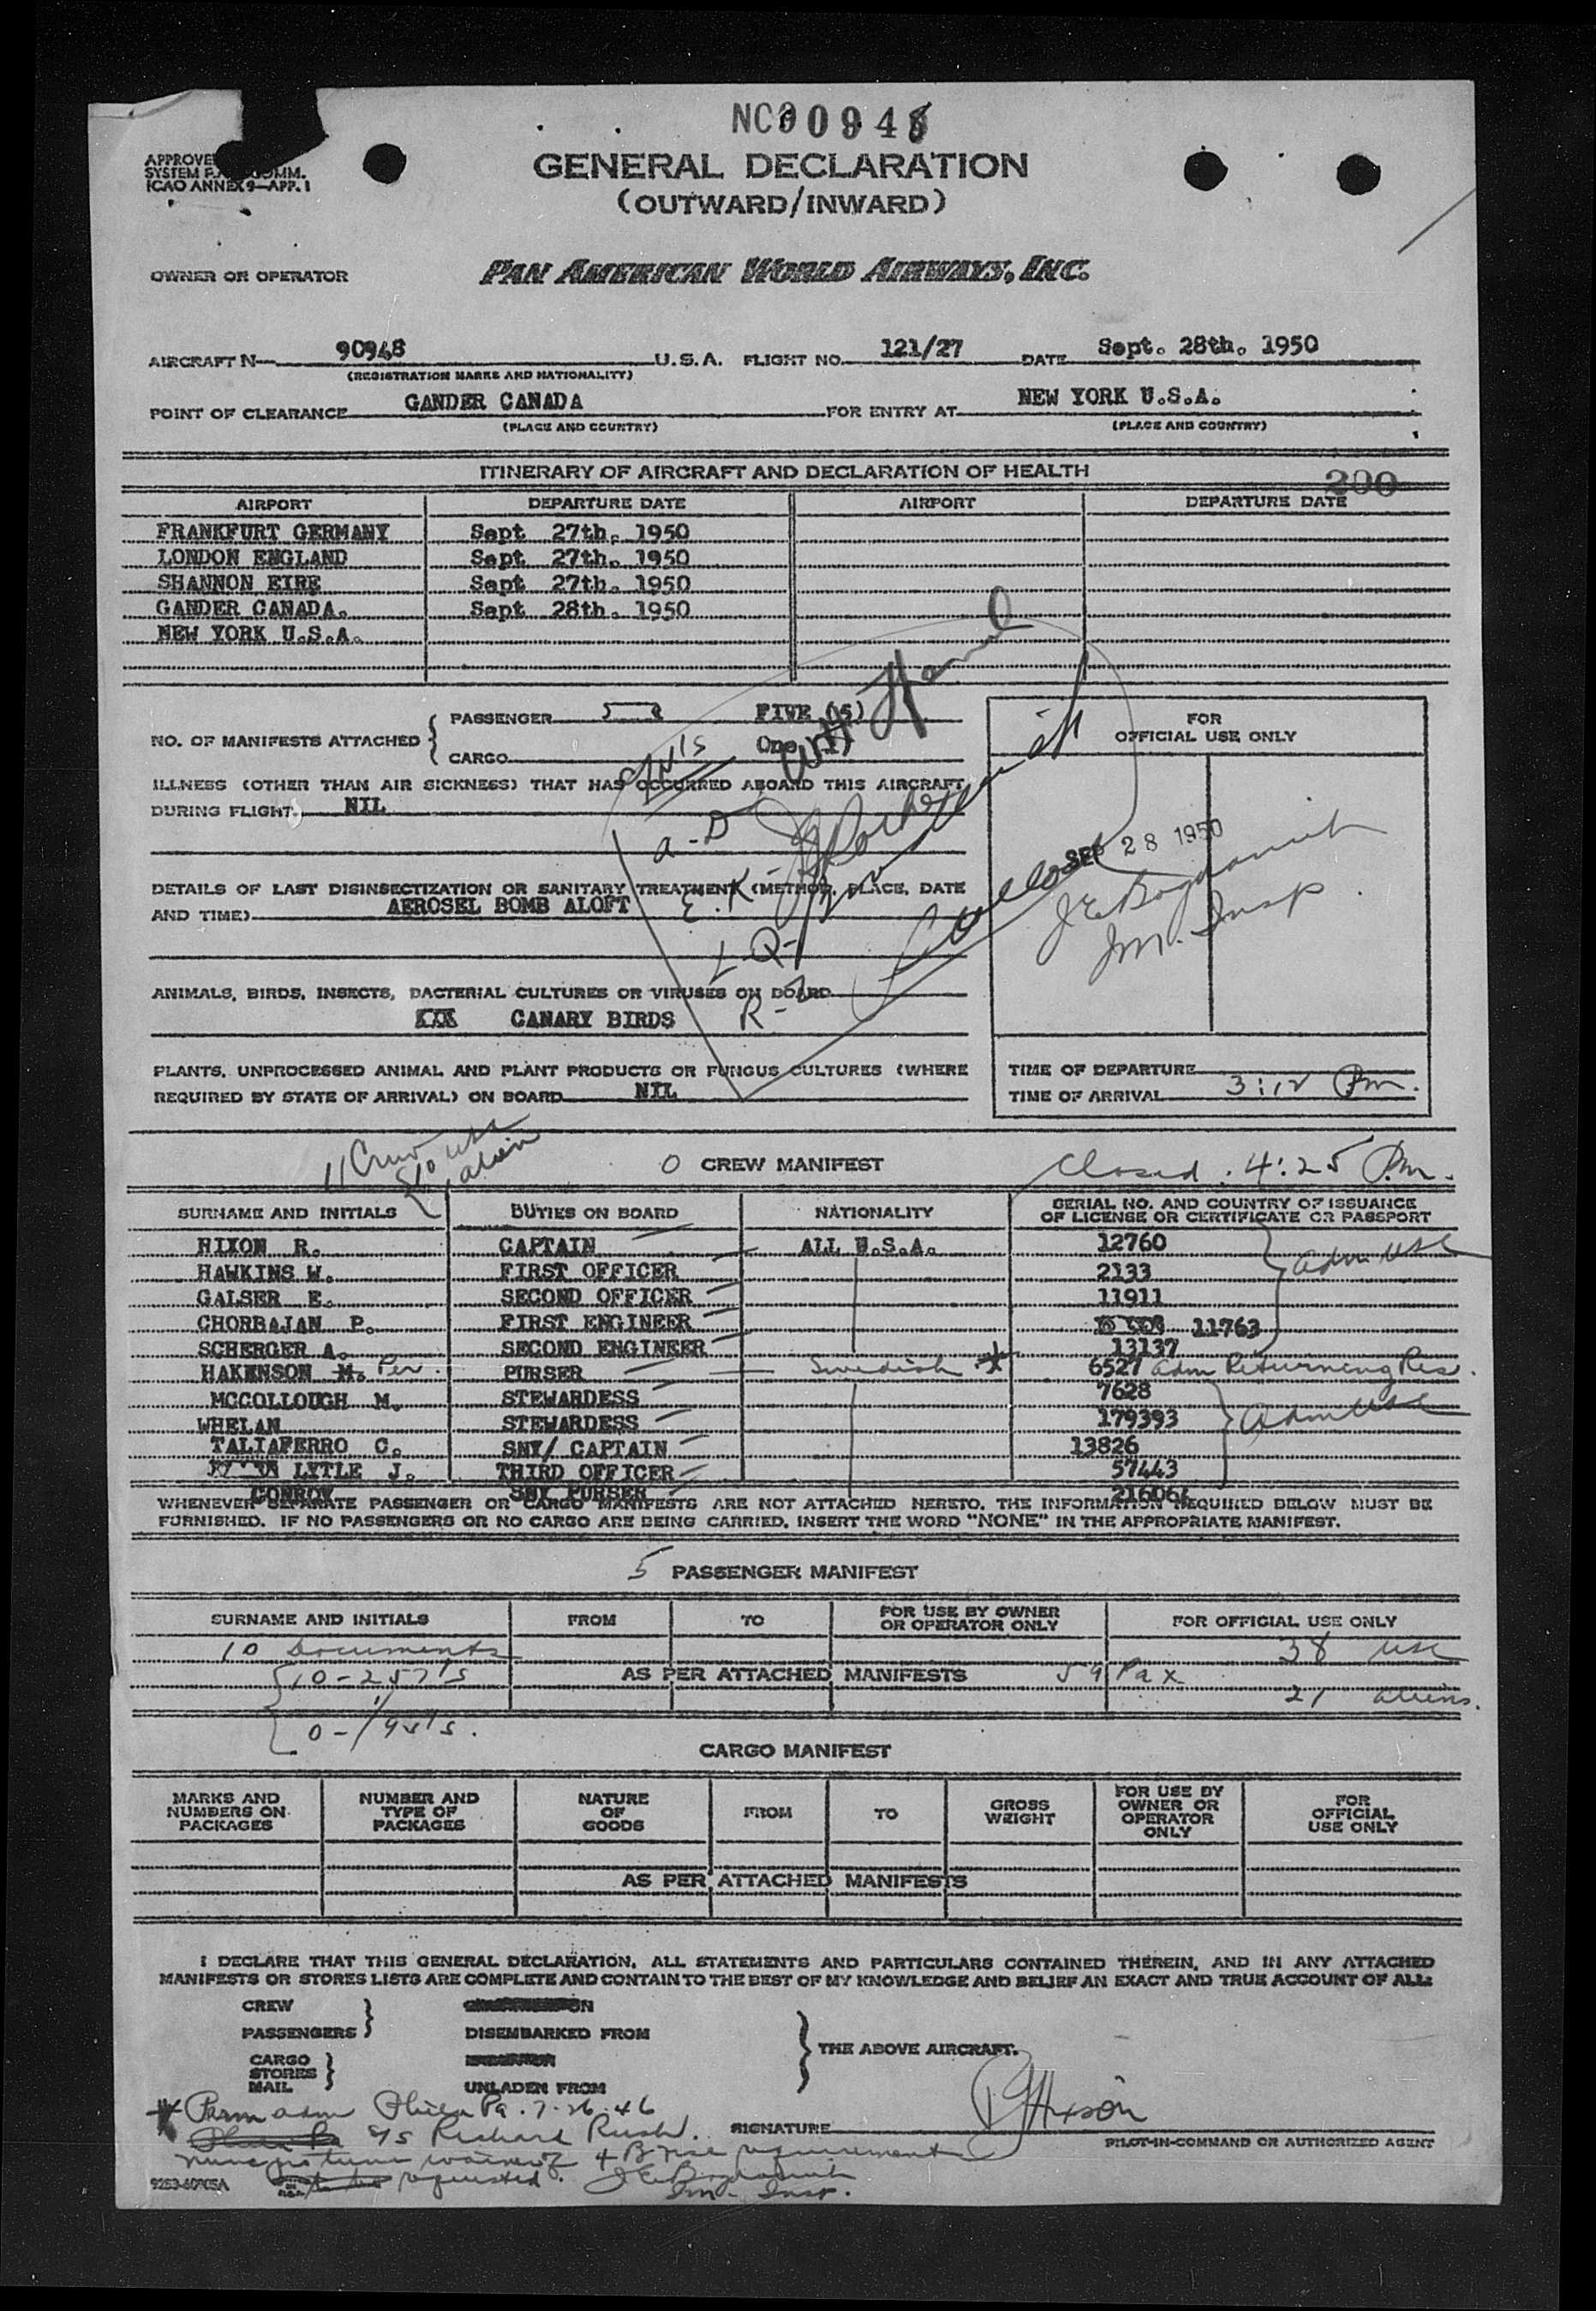 NC90948
GENERAL DECLARATION
(OUTWARD/INWARD)
APPROVE
SYSTEM F. COMM.
ICAO ANNEX 9—APP. 1
OWNER OR OPERATOR PAN AMERICAN WORLD AIRWAYS, INC.
AIRCRAFT N— 90948 U.S.A. FLIGHT NO. 121/27 DATE Sept. 28th. 1950
(REGISTRATION MARKS AND NATIONALITY)
POINT OF CLEARANCE GANDER CANADA FOR ENTRY AT NEW YORK U.S.A.
(PLACE AND COUNTRY) (PLACE AND COUNTRY)
ITINERARY OF AIRCRAFT AND DECLARATION OF HEALTH
200
AIRPORT DEPARTURE DATE AIRPORT DEPARTURE DATE
FRANKFURT GERMANY Sept 27th. 1950
LONDON ENGLAND Sept 27th. 1950
SHANNON EIRE Sept 27th. 1950
GANDER CANADA. Sept 28th. 1950
NEW YORK U.S.A.
NO. OF MANIFESTS ATTACHED { PASSENGER 5 FIVE (5)
CARGO One
FOR
OFFICIAL USE ONLY
ILLNESS (OTHER THAN AIR SICKNESS) THAT HAS OCCURRED ABOARD THIS AIRCRAFT
DURING FLIGHT NIL
a-D
SEP 28 1950
DETAILS OF LAST DISINSECTIZATION OR SANITARY TREATMENT (METHOD, PLACE, DATE
AND TIME) AEROSEL BOMB ALOFT
E.K-
Im. Insp.
L-Q-
ANIMALS, BIRDS, INSECTS, BACTERIAL CULTURES OR VIRUSES ON BOARD
XXX CANARY BIRDS R-Z
PLANTS, UNPROCESSED ANIMAL AND PLANT PRODUCTS OR FUNGUS CULTURES (WHERE
REQUIRED BY STATE OF ARRIVAL) ON BOARD NIL
TIME OF DEPARTURE
TIME OF ARRIVAL 3:12 Pm.
11 Crew 10 usc
1 alien
0 CREW MANIFEST Closed. 4:25 Pm.
SURNAME AND INITIALS DUTIES ON BOARD NATIONALITY SERIAL NO. AND COUNTRY OF ISSUANCE
OF LICENSE OR CERTIFICATE OR PASSPORT
HIXON R. CAPTAIN ALL U.S.A. 12760 Adm USC
HAWKINS W. FIRST OFFICER 2133
GALSER E. SECOND OFFICER 11911
CHORBAJAN P. FIRST ENGINEER 11763
SCHERGER A. SECOND ENGINEER 13137
HAKENSON M. Per PURSER Swedish * 6527 adm Returning Res.
MCCOLLOUGH M. STEWARDESS 7628
WHELAN STEWARDESS 179393 adm USC
TALIAFERRO C. SNY/ CAPTAIN 13826
LYTLE J. THIRD OFFICER 57443
CONROY SNY PURSER 21606
WHENEVER SEPARATE PASSENGER OR CARGO MANIFESTS ARE NOT ATTACHED HERETO, THE INFORMATION REQUIRED BELOW MUST BE
FURNISHED. IF NO PASSENGERS OR NO CARGO ARE BEING CARRIED, INSERT THE WORD "NONE" IN THE APPROPRIATE MANIFEST.
5 PASSENGER MANIFEST
SURNAME AND INITIALS FROM TO FOR USE BY OWNER
OR OPERATOR ONLY FOR OFFICIAL USE ONLY
10 Documents 38 USC
10-257's AS PER ATTACHED MANIFESTS 59 Pax
21 aliens.
0-1
CARGO MANIFEST
MARKS AND
NUMBERS ON
PACKAGES NUMBER AND
TYPE OF
PACKAGES NATURE
OF
GOODS FROM TO GROSS
WEIGHT FOR USE BY
OWNER OR
OPERATOR
ONLY FOR
OFFICIAL
USE ONLY
AS PER ATTACHED MANIFESTS
I DECLARE THAT THIS GENERAL DECLARATION, ALL STATEMENTS AND PARTICULARS CONTAINED THEREIN, AND IN ANY ATTACHED
MANIFESTS OR STORES LISTS ARE COMPLETE AND CONTAIN TO THE BEST OF MY KNOWLEDGE AND BELIEF AN EXACT AND TRUE ACCOUNT OF ALL:
CREW
PASSENGERS } DISEMBARKED FROM
CARGO
STORES
MAIL } UNLADEN FROM
} THE ABOVE AIRCRAFT.
* Perm adm Phila Pa. 7-26-46
SS Richard Rush.
SIGNATURE R Hixson
PILOT-IN-COMMAND OR AUTHORIZED AGENT
nunc pro tunc waiver of 4 B visa requirement
requested.
Im. Insp.